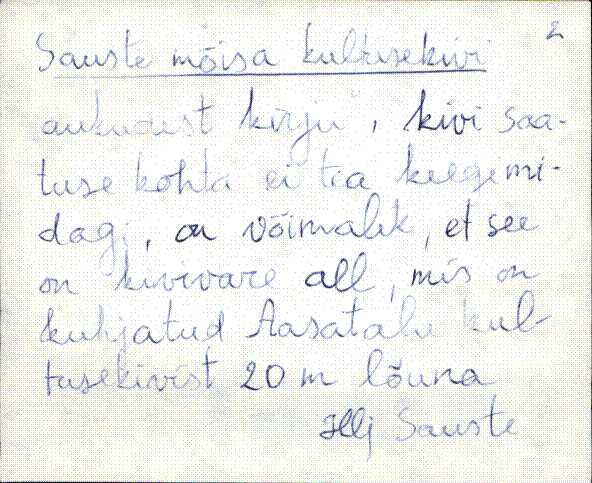 2
Sauste mõisa kultusekivi
aukudest kirju", kivi saa-
tuse kohta ei tea keegi mi-
dagi, on võimalik, et see
on kivivare all, mis on
kuhjatud Aasatalu kul-
tusekivist 20 m lõuna
Sauste